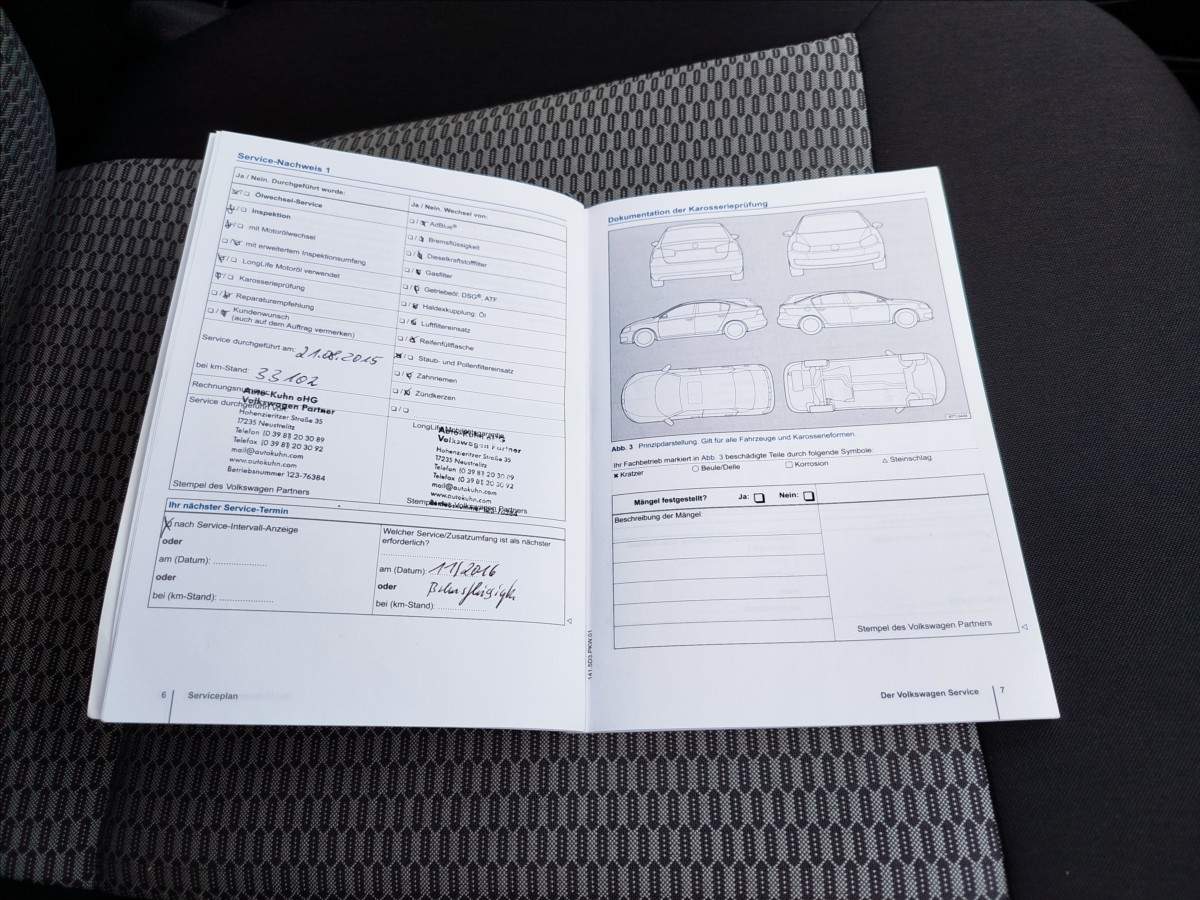 Service-Nachweis 1
Ja / Nein. Durchgeführt wurde:
Ölwechsel-Service
Inspektion
mit Motorölwechsel
mit erweitertem Inspektionsumfang
LongLife Motoröl verwendet
Karosserieprüfung
Reparaturempfehlung
Kundenwunsch
(auch auf dem Auftrag vermerken)
Service durchgeführt am: 21.08.2015
bei km-Stand: 33102
Auto-Kuhn oHG
Volkswagen Partner
Hohenzieritzer Straße 35
17235 Neustrelitz
Telefon (0 39 81) 20 30 89
Telefax (0 39 81) 20 30 92
mail@autokuhn.com
www.autokuhn.com
Betriebsnummer 123-76384
Stempel des Volkswagen Partners
Ja / Nein. Wechsel von:
AdBlue®
Bremsflüssigkeit
Dieselkraftstofffilter
Gasfilter
Getriebeöl: DSG®, ATF
Haldexkupplung: Öl
Luftfiltereinsatz
Reifenfüllflasche
Staub- und Pollenfiltereinsatz
Zahnriemen
Zündkerzen
Auto-Kuhn oHG
Volkswagen Partner
Hohenzieritzer Straße 35
17235 Neustrelitz
Telefon (0 39 81) 20 30 89
Telefax (0 39 81) 20 30 92
mail@autokuhn.com
www.autokuhn.com
Stempel des Volkswagen Partners
Ihr nächster Service-Termin
nach Service-Intervall-Anzeige
oder
am (Datum):
oder
bei (km-Stand):
Welcher Service/Zusatzumfang ist als nächster
erforderlich?
am (Datum): 11/2016
oder
bei (km-Stand):
6 Serviceplan
141.5D3.PKW.01
Dokumentation der Karosserieprüfung
Abb. 3 Prinzipdarstellung. Gilt für alle Fahrzeuge und Karosserieformen.
Ihr Fachbetrieb markiert in Abb. 3 beschädigte Teile durch folgende Symbole:
Kratzer Beule/Delle Korrosion Steinschlag
Mängel festgestellt? Ja: Nein:
Beschreibung der Mängel:
Stempel des Volkswagen Partners
Der Volkswagen Service 7